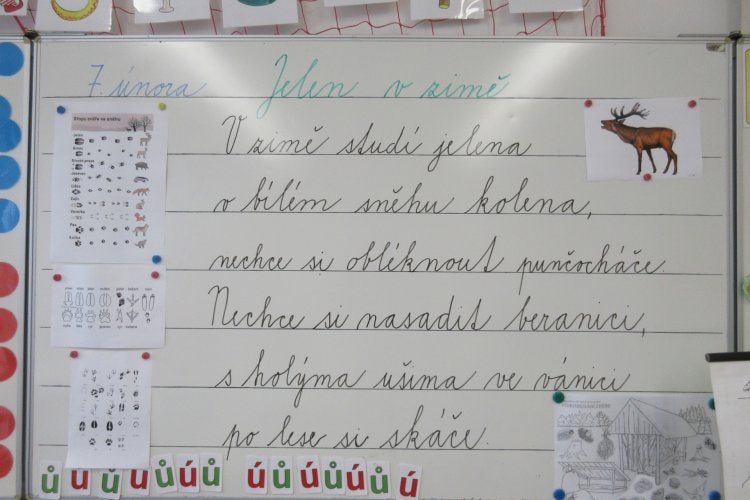 7. února
Jelen v zimě
V zimě studí jelena
v bílém sněhu kolena,
nechce si obléknout punčocháče.
Nechce si nasadit beranici,
s holýma ušima ve vánici
po lese si skáče.
Stopy zvěře na sněhu
ů ú ů ú ú ů ů ú ů ú ů ú ů ú